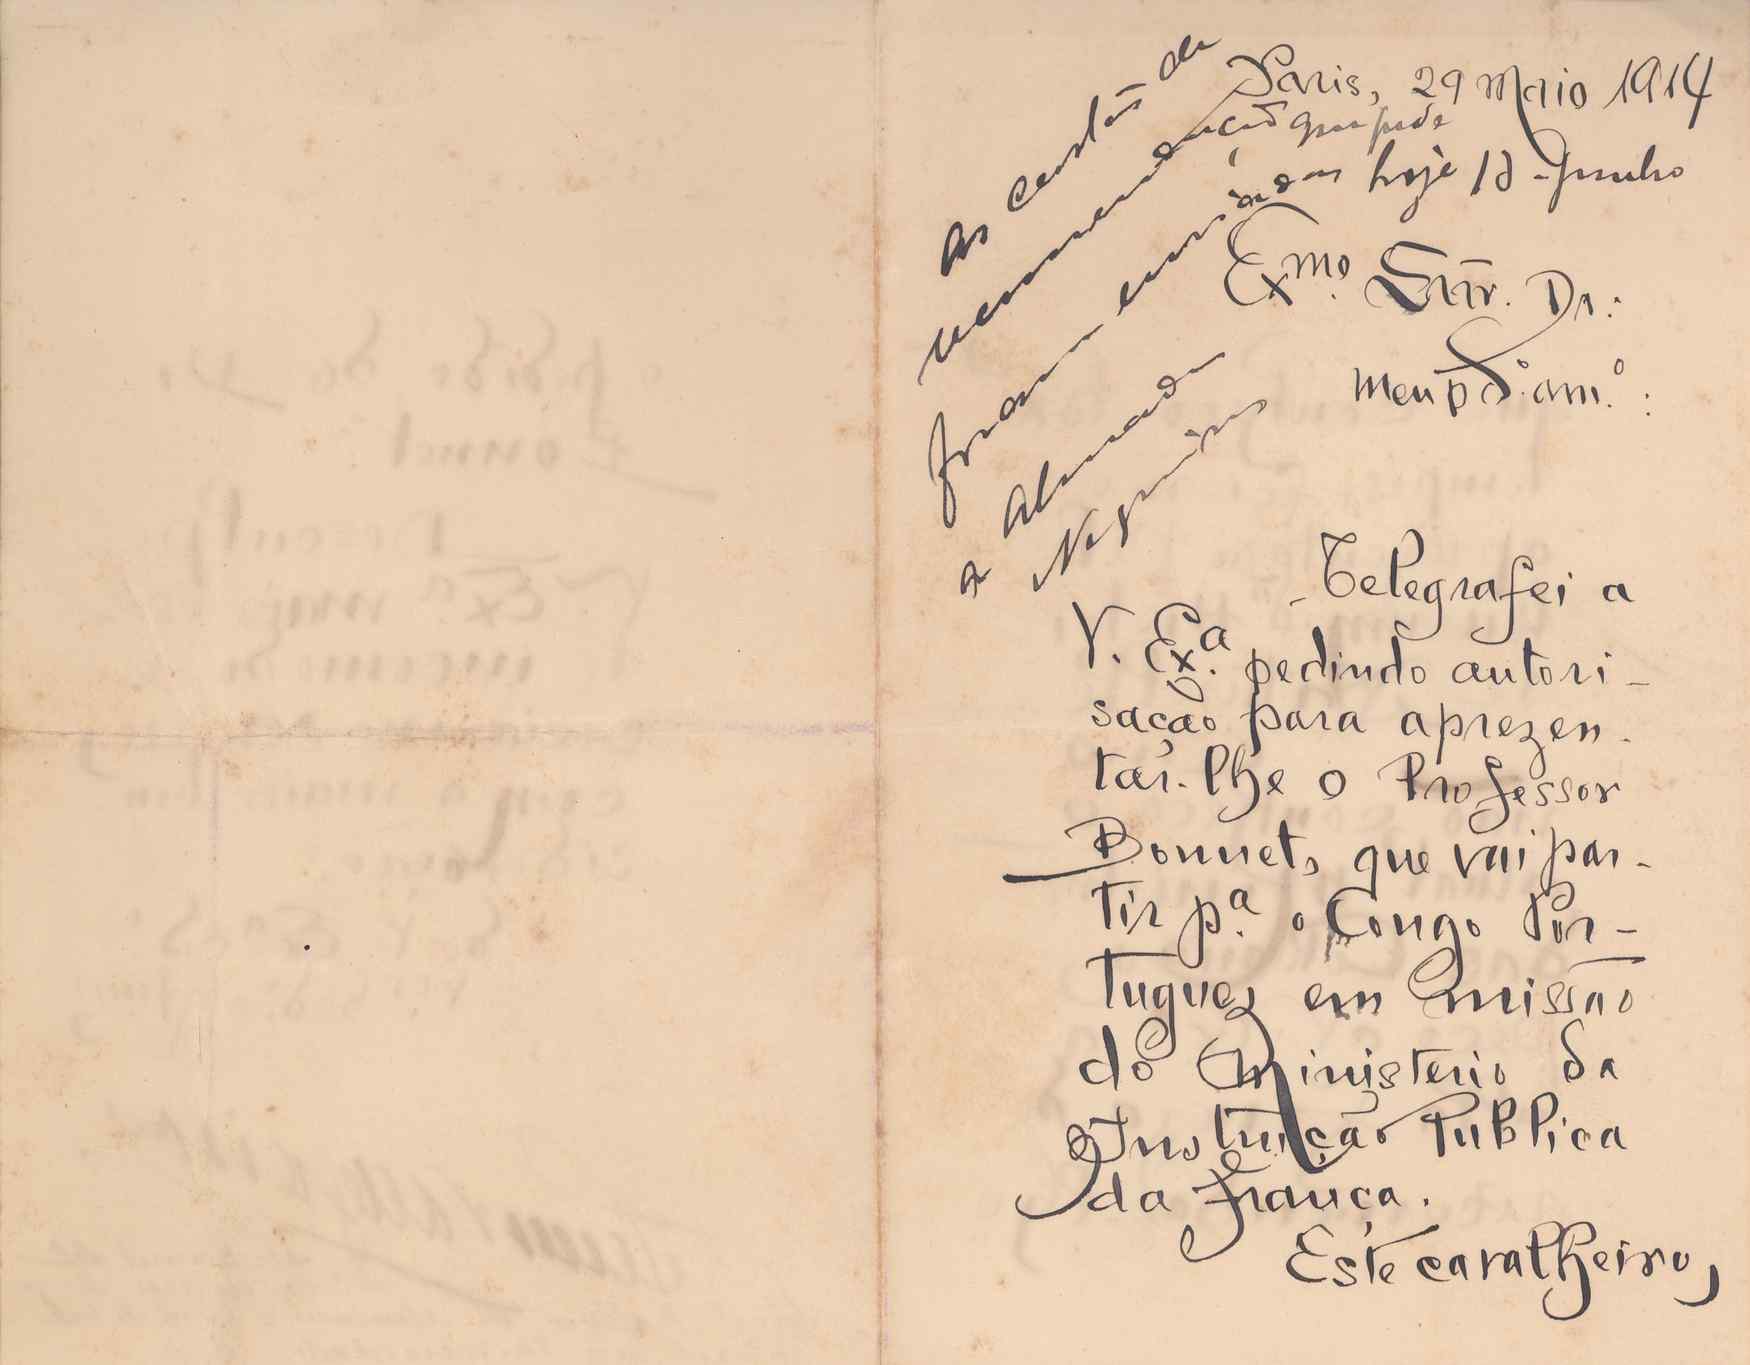 Paris, 29 Maio 1914
As cartas de
recommendação que pede
foram enviadas hoje 12-Junho
a Almada
Negreiros
Exmo. Snr. Dr.:
meu pdo. amo.:
- Telegrafei a
V. Exa. pedindo autori-
sação para aprezen-
tar-lhe o Professor
Bonnet, que vai par-
tir pa. o Congo Por-
tuguez em missão
do Ministerio da
Instrucção Publica
da França.
Este cavalheiro,